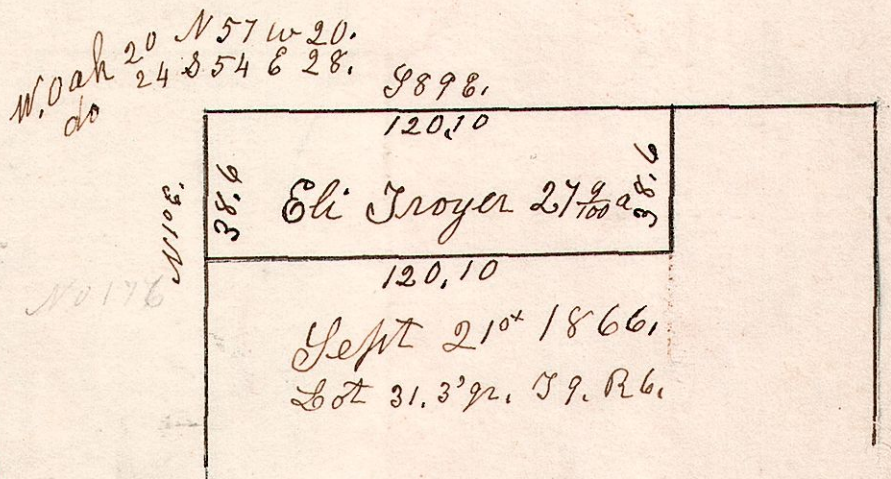 W. Oak 20 N 57 W 20.
do 24 S 54 E 28.
S 89 E.
120,10
38.6
Eli Troyer 27 9/100 a
38.6
N 1° E.
120,10
No 176
Sept 21st 1866.
Lot 31. 3' qr. T 9. R 6.